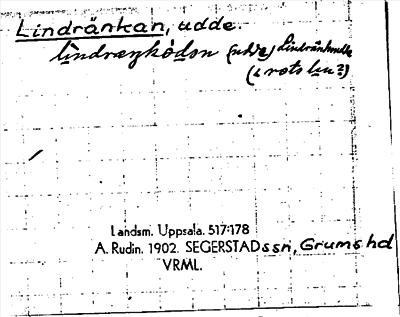 Lindränkan, udde.
(udde) Lindränkudde
(2 rots lin?)
Landsm. Uppsala. 517:178
A. Rudin. 1902. SEGERSTAD ssn, Grums hd
VRML.